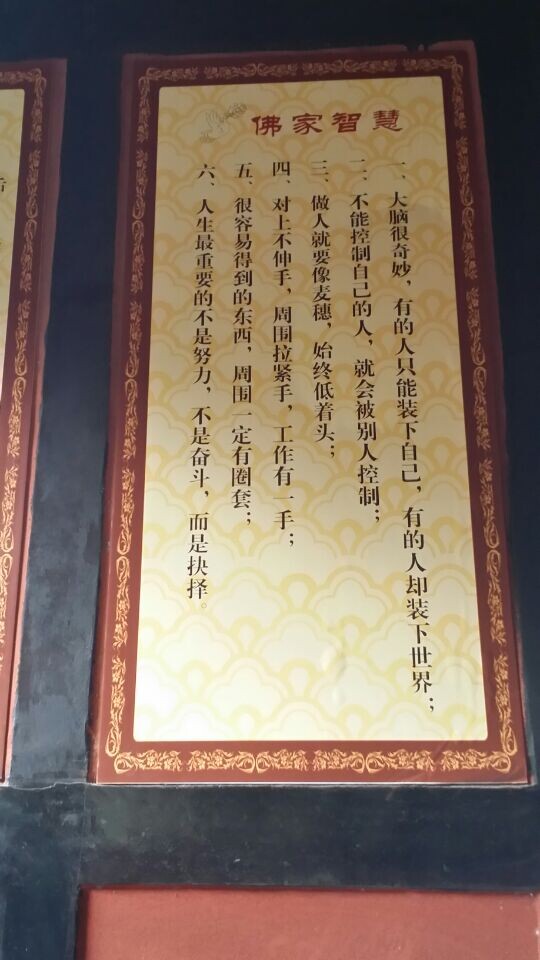 佛家智慧
一、大脑很奇妙，有的人只能装下自己，有的人却装下世界；
二、不能控制自己的人，就会被别人控制；
三、做人就要像麦穗，始终低着头；
四、对上不伸手，周围拉紧手，工作有一手；
五、很容易得到的东西，周围一定有圈套；
六、人生最重要的不是努力，不是奋斗，而是抉择。